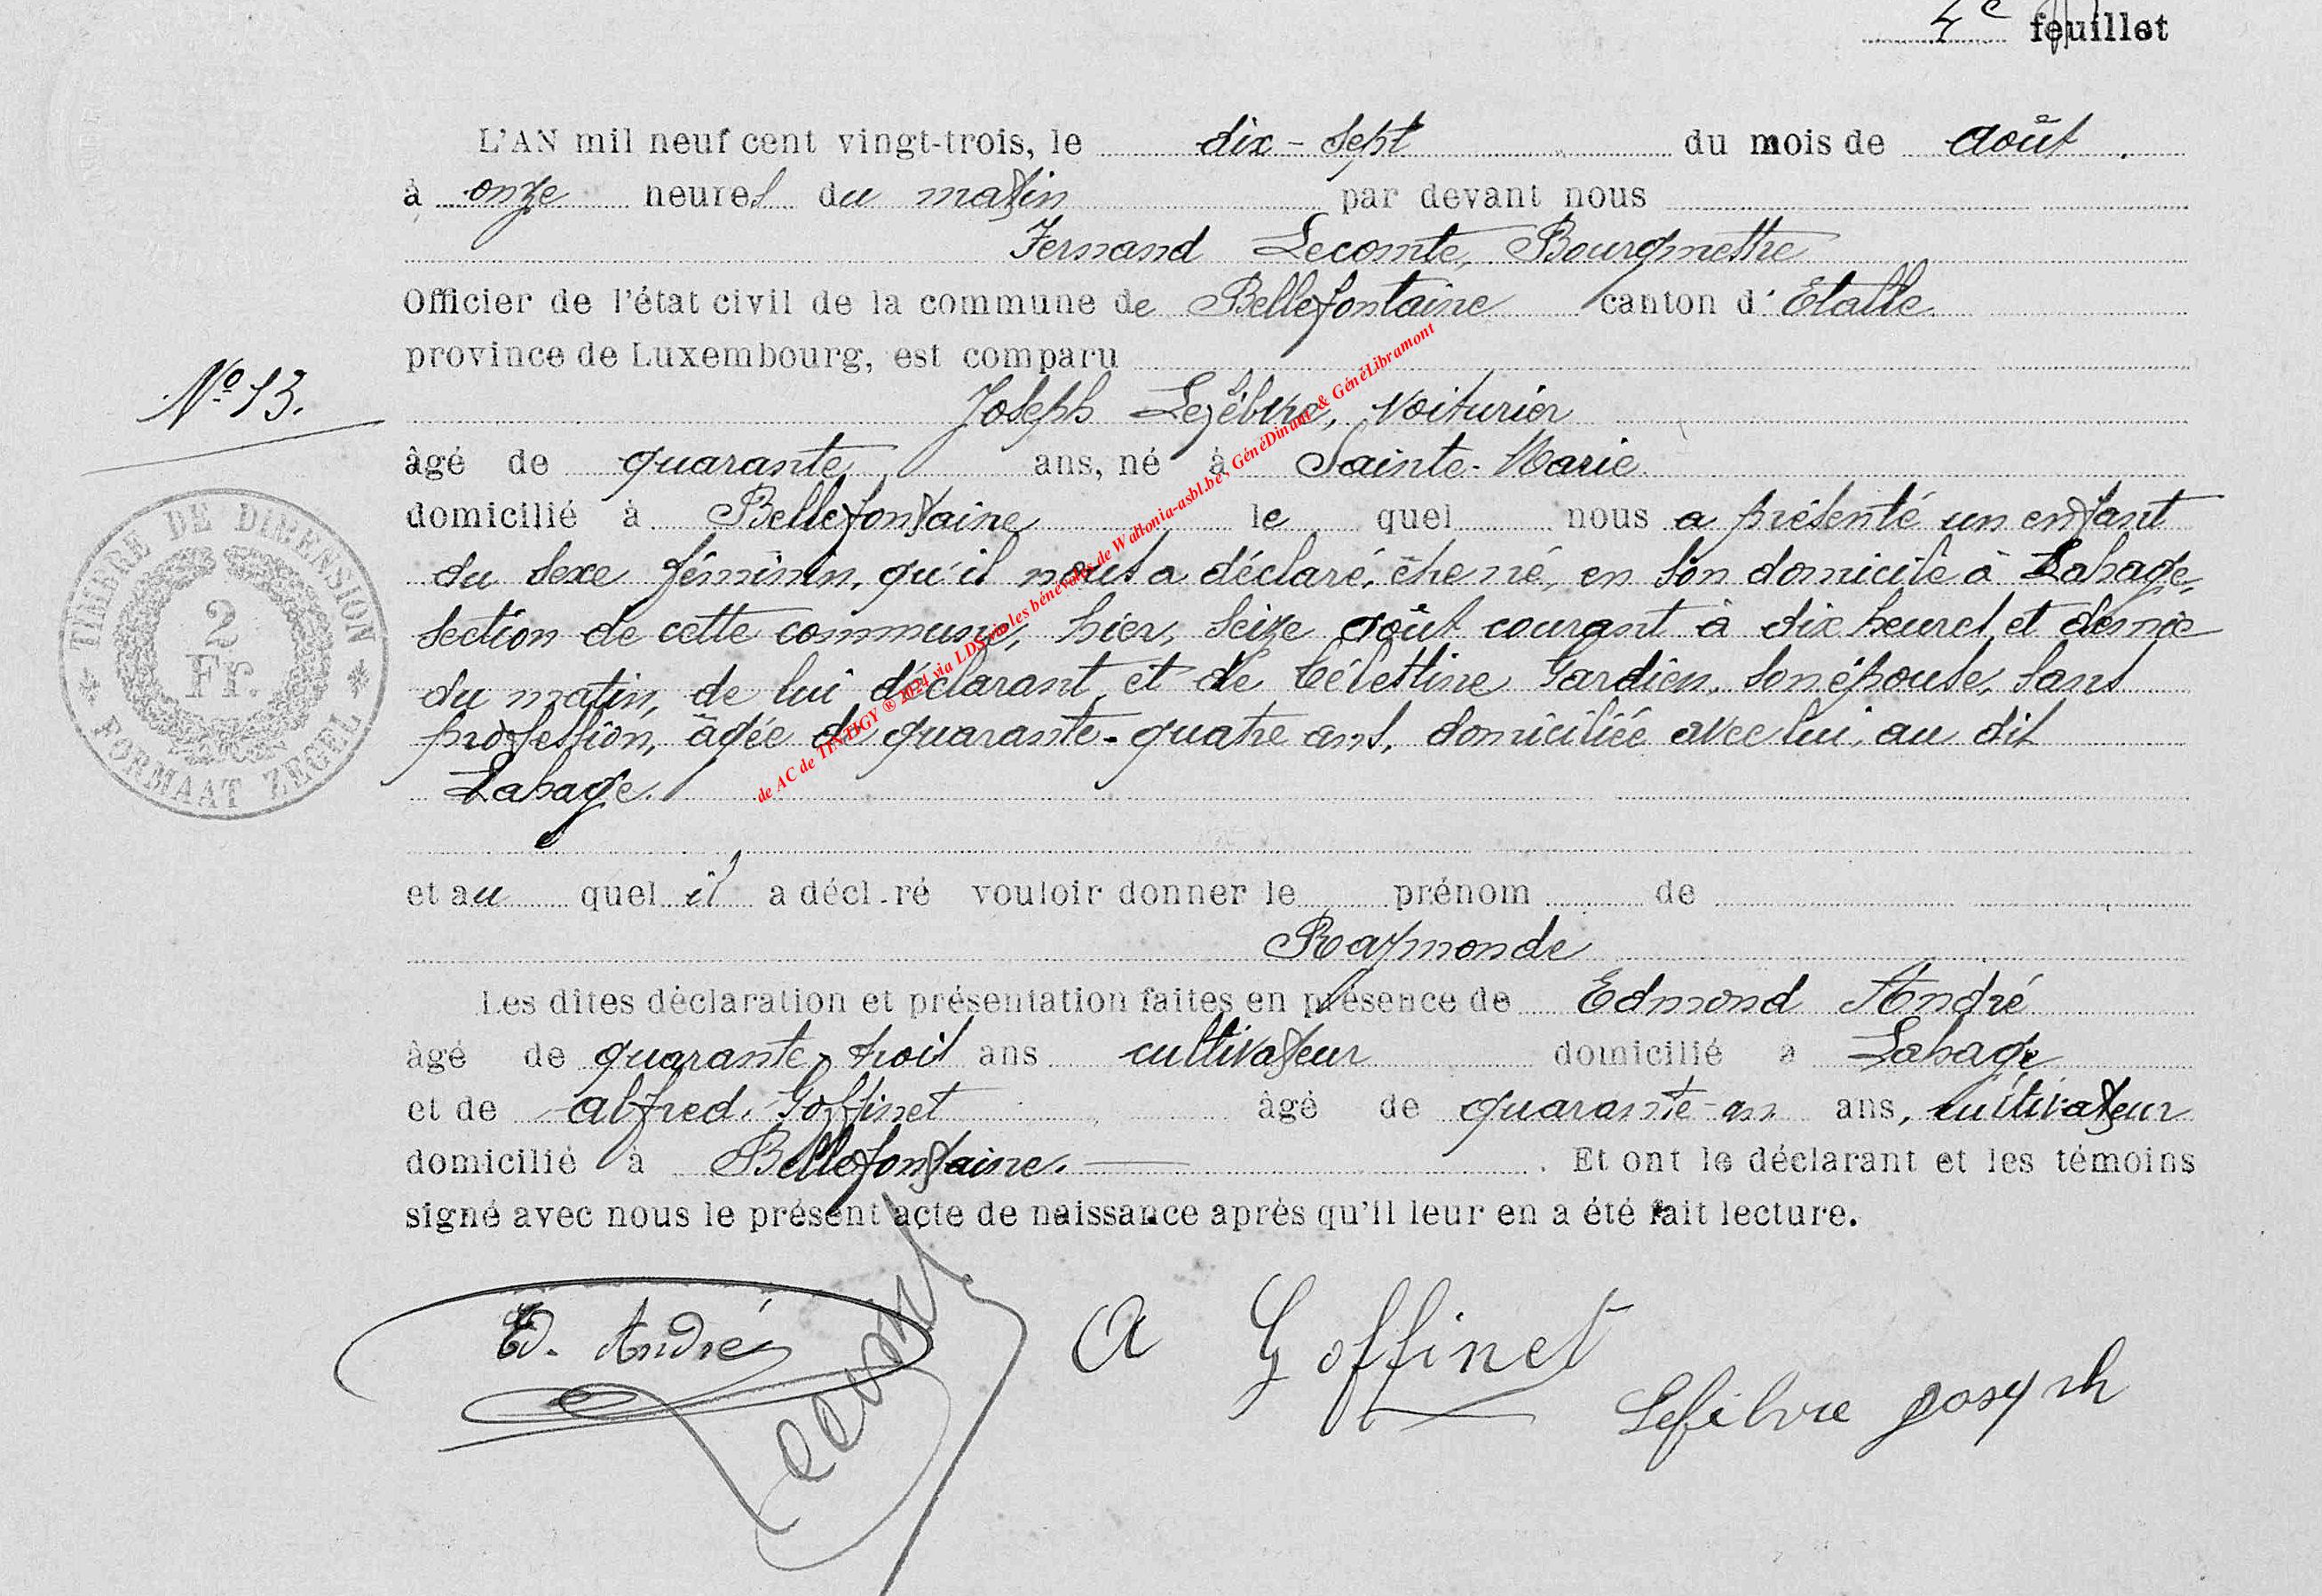 4e feuillet
L'AN mil neuf cent vingt-trois, le dix-sept du mois de août
à onze heures du matin par devant nous
Fernand Lecomte, Bourgmestre
Officier de l'état civil de la commune de Bellefontaine canton d'Etalle
province de Luxembourg, est comparu
No 13.
Joseph Lefèbvre, voiturier
âgé de quarante ans, né à Sainte-Marie
domicilié à Bellefontaine le quel nous a présenté un enfant
du sexe féminin, qu'il nous a déclaré, être né, en son domicile à Lahage,
section de cette commune, hier, seize août courant à dix heures et demie
du matin, de lui déclarant et de Célestine Gardien, son épouse, sans
profession, âgée de quarante-quatre ans, domiciliée avec lui, au dit
Lahage.
TIMBRE DE DIMENSION
2
Fr.
FORMAAT ZEGEL
de AC de TINTIGY ® 2024 via LDS via les bénévoles de Wallonia-asbl.be, GénéDinant & GénéLibramont
et au quel il a décl.ré vouloir donner le prénom de
Raymonde
Les dites déclaration et présentation faites en présence de Edmond André
âgé de quarante-trois ans cultivateur domicilié à Lahage
et de Alfred Goffinet âgé de quarante-un ans, cultivateur
domicilié à Bellefontaine. Et ont le déclarant et les témoins
signé avec nous le présent acte de naissance après qu'il leur en a été fait lecture.
Ed. André
Lecomte
A Goffinet
Lefèbvre Joseph